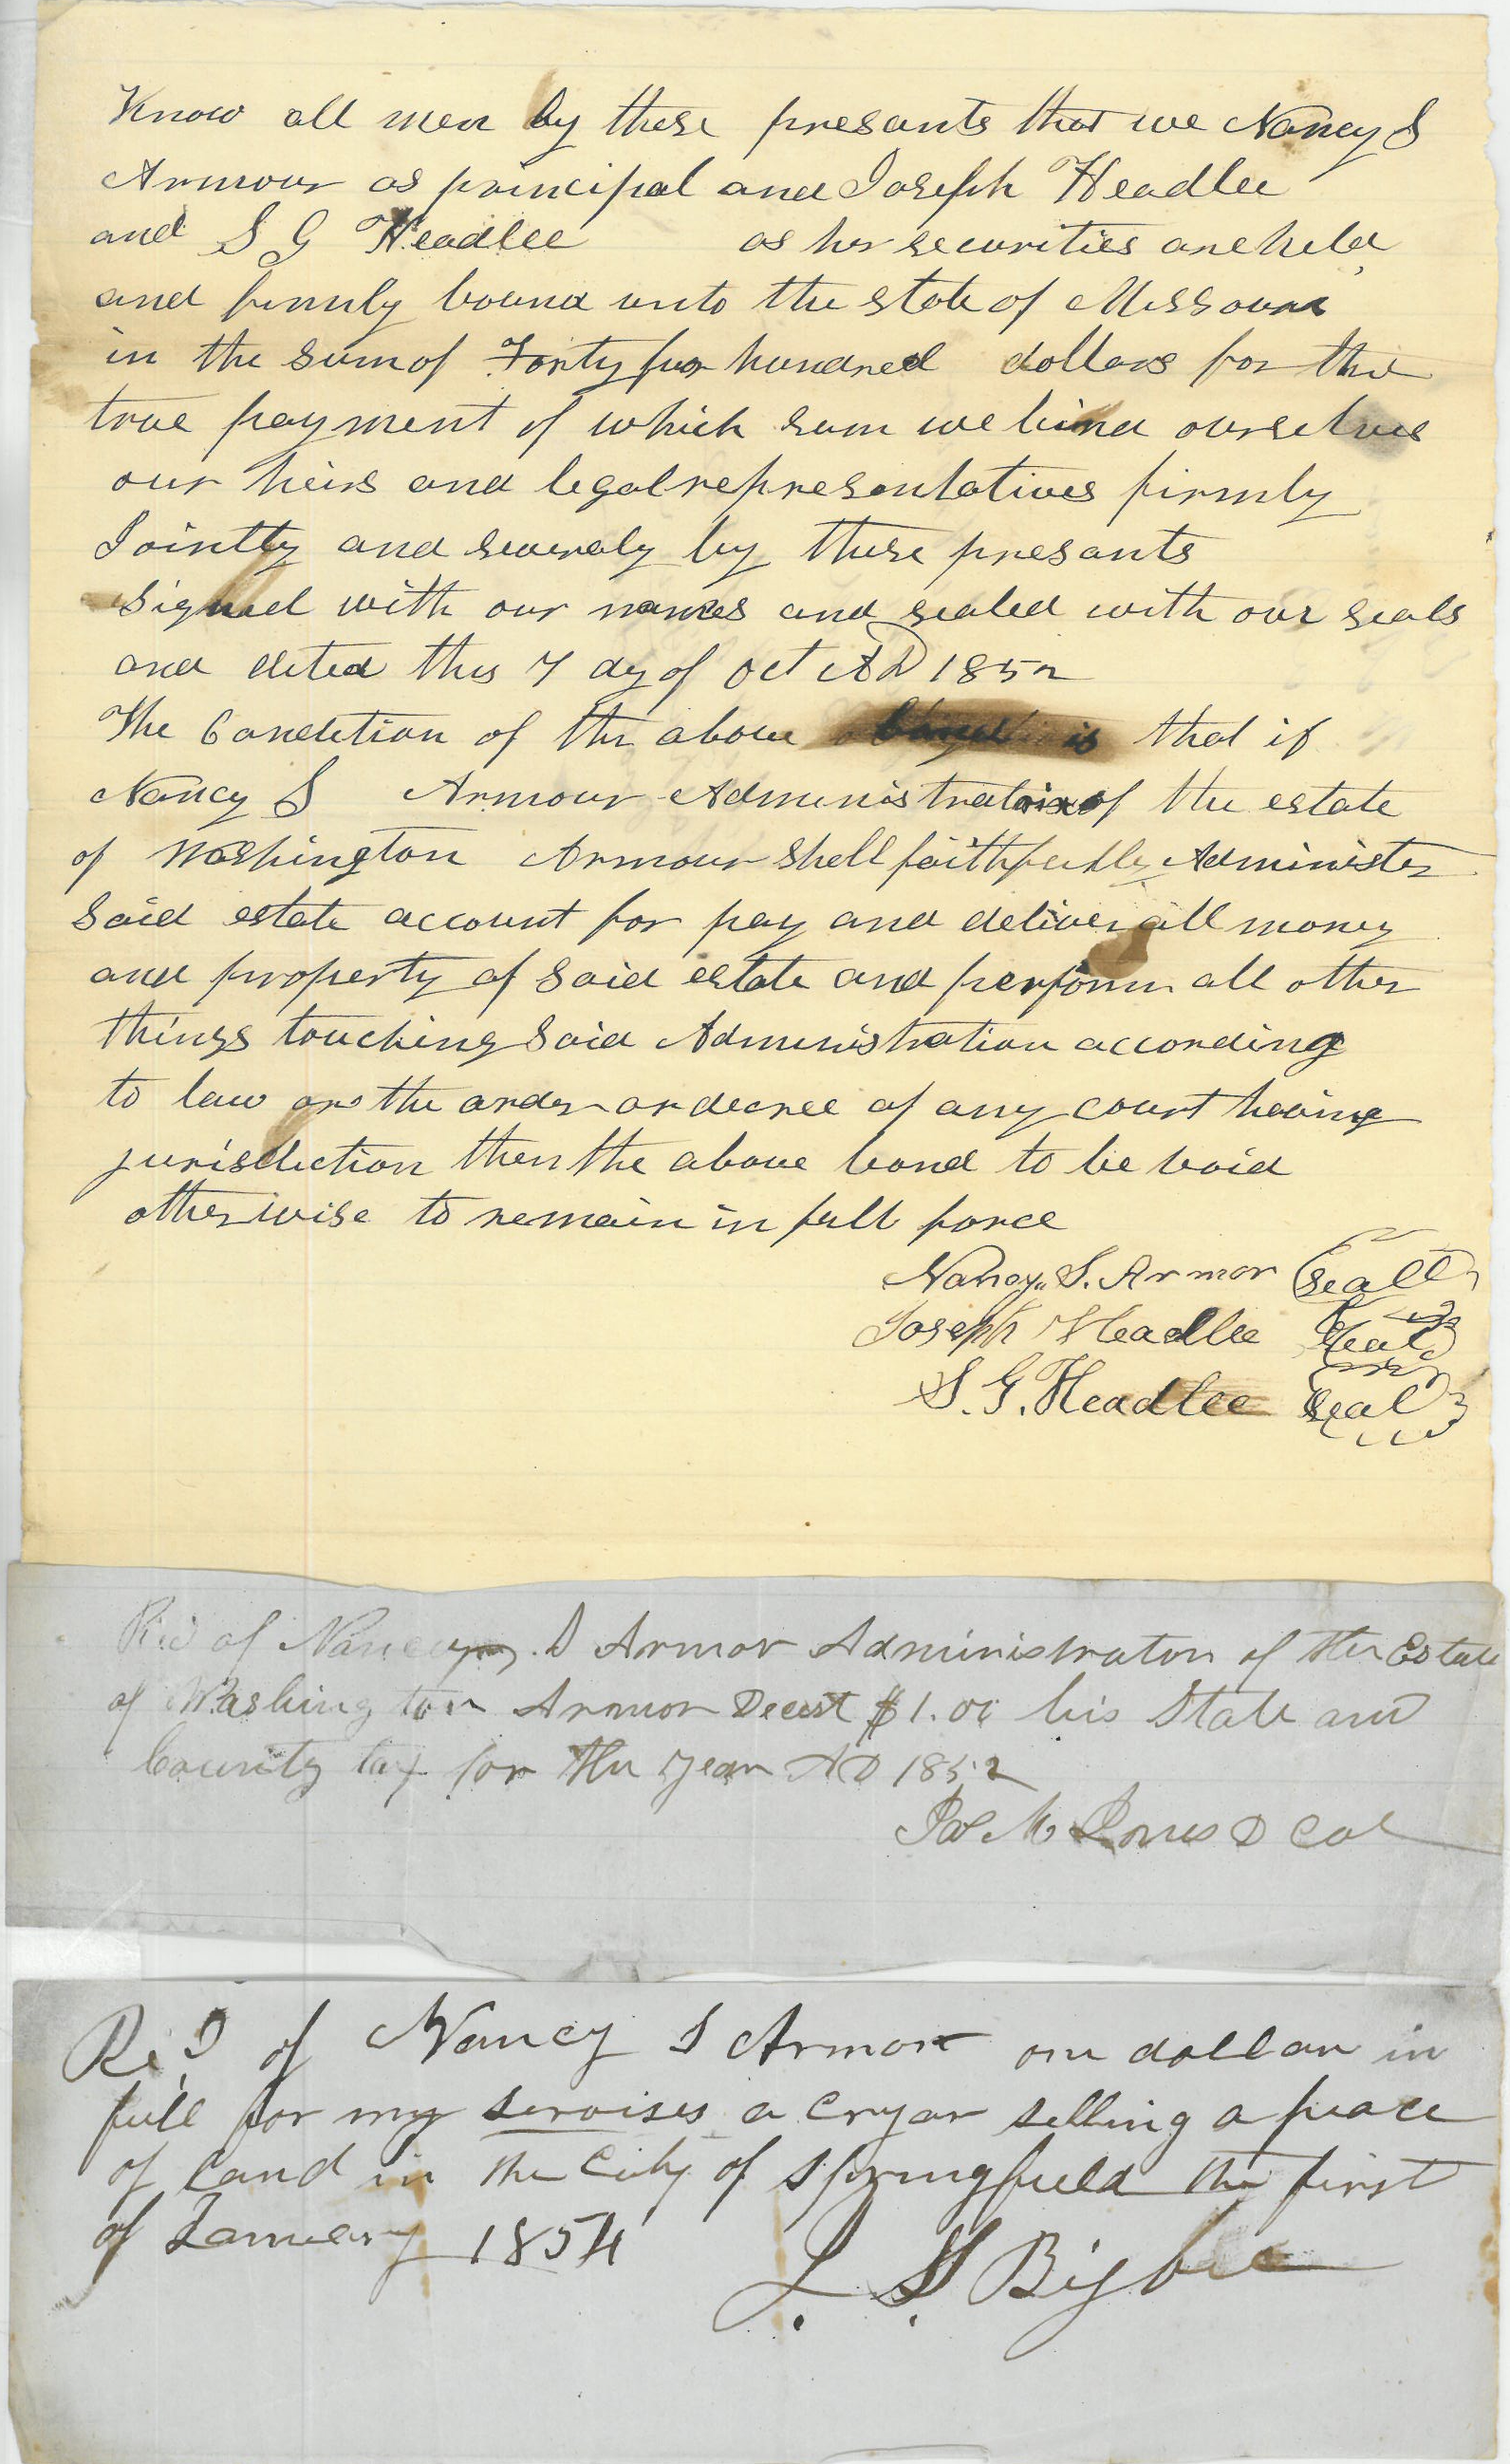 Know all men by these presants that we Nancy S
Armour as principal and Joseph Headlee
and S G Headlee as her securities are held
and firmly bound unto the state of Missouri
in the sum of Forty four hundred dollars for the
true payment of which sum we bind ourselves
our heirs and legal representatives firmly
Jointly and severaly by these presants
signed with our names and sealed with our seals
and dated this 7 day of Oct AD 1852
The Condition of the above bond is that if
Nancy S Armour Administratrix of the estate
of Washington Armour shall faithfully Administer
said estate account for pay and deliver all money
and property of said estate and perform all other
things touching said Administration according
to law or the order or decree of any court having
jurisdiction then the above bond to be void
otherwise to remain in full force
Nancy. S. Armor Seal
Joseph Headlee Seal
S. G. Headlee Seal
Rec'd of Nancy S Armor Administrator of the Estate
of Washington Armor Decest $1.00 his State and
County tax for the year AD 1852
M Jones D Col
Rec'd of Nancy S Armor one dollar in
full for my servises a Cryar selling a peace
of Land in the City of Springfield the first
of January 1854
L. H. Bigbee